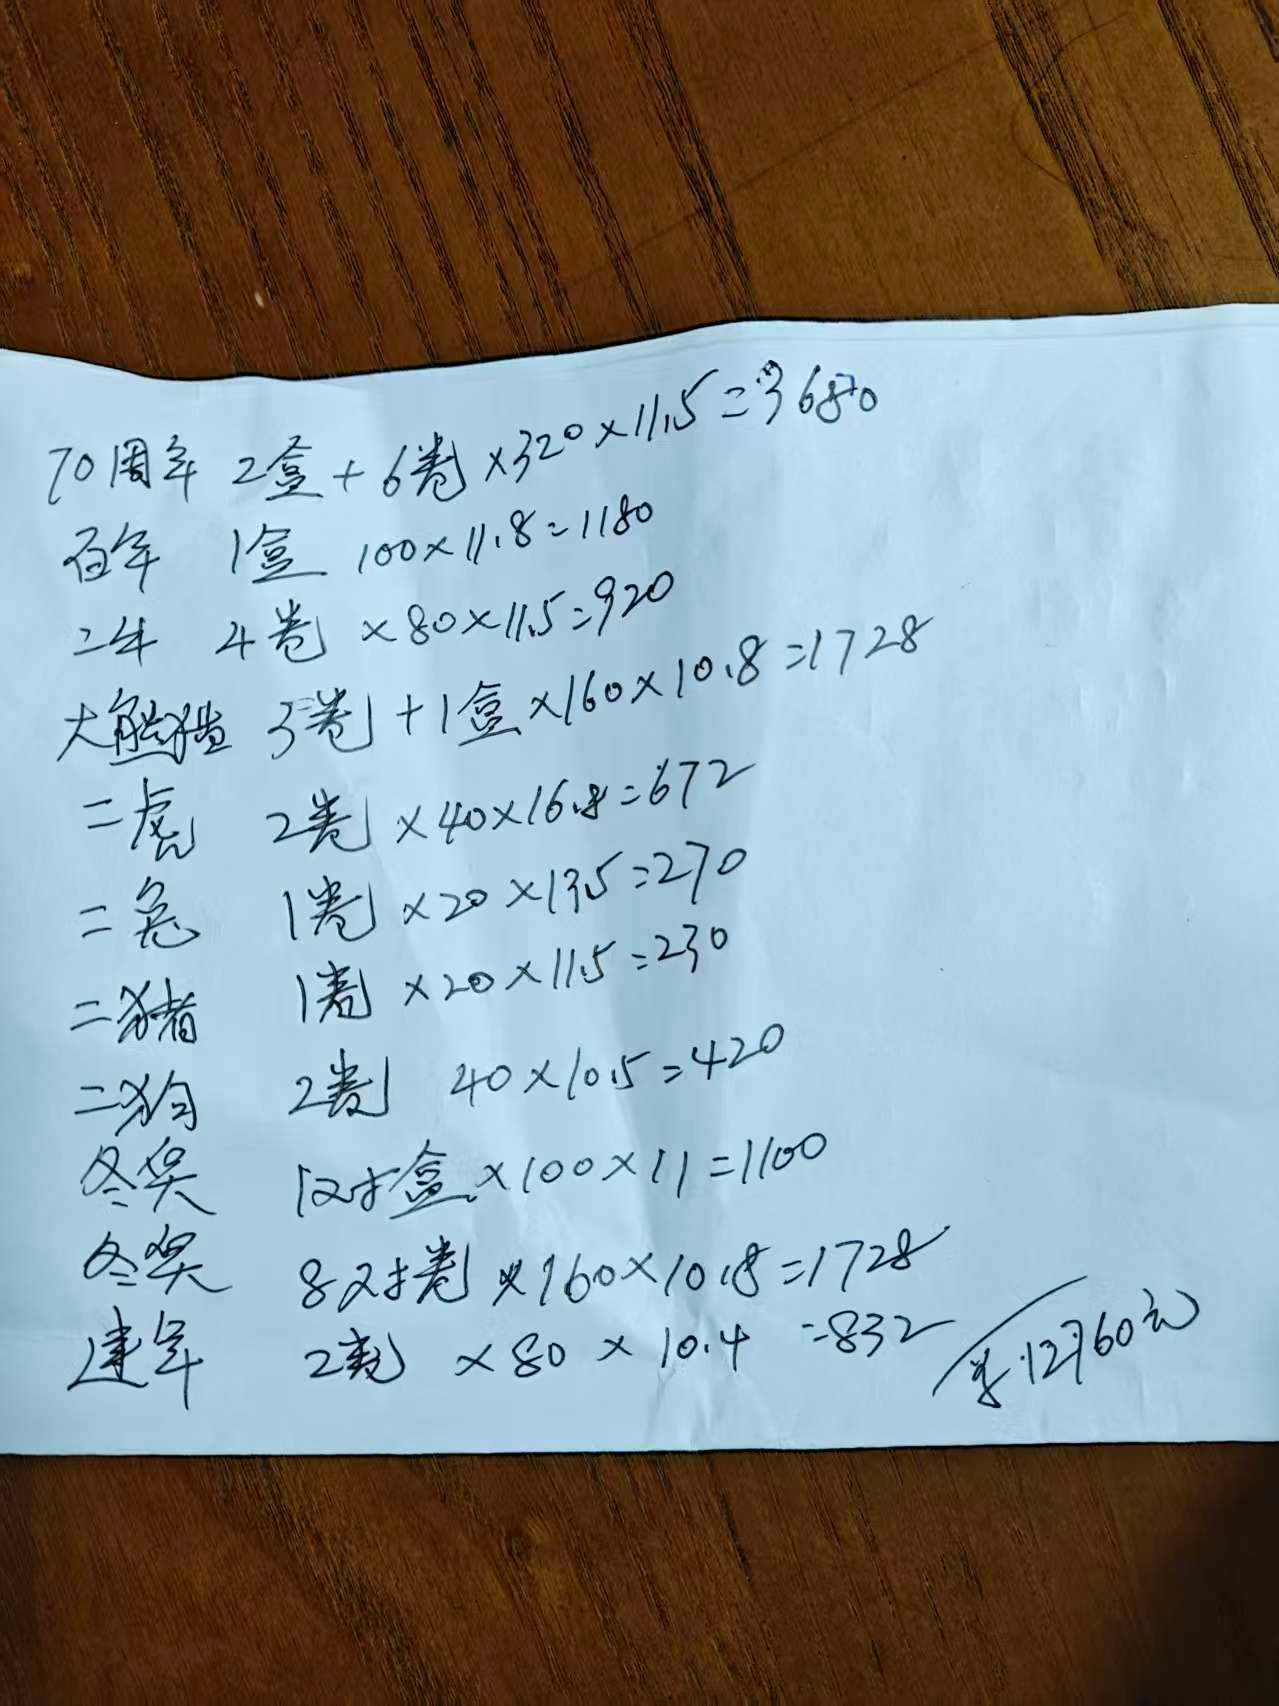 70周年 2盒+6卷×320×11.5=3680
百年 1盒 100×11.8=1180
二牛 4卷 ×80×11.5=920
大熊猫 3卷+1盒×160×10.8=1728
二虎 2卷×40×16.8=672
二兔 1卷×20×13.5=270
二猪 1卷×20×11.5=230
二狗 2卷 40×10.5=420
冬奥 1对盒×100×11=1100
冬奥 8对卷×160×10.8=1728
建军 2卷×80×10.4=832
共12760元